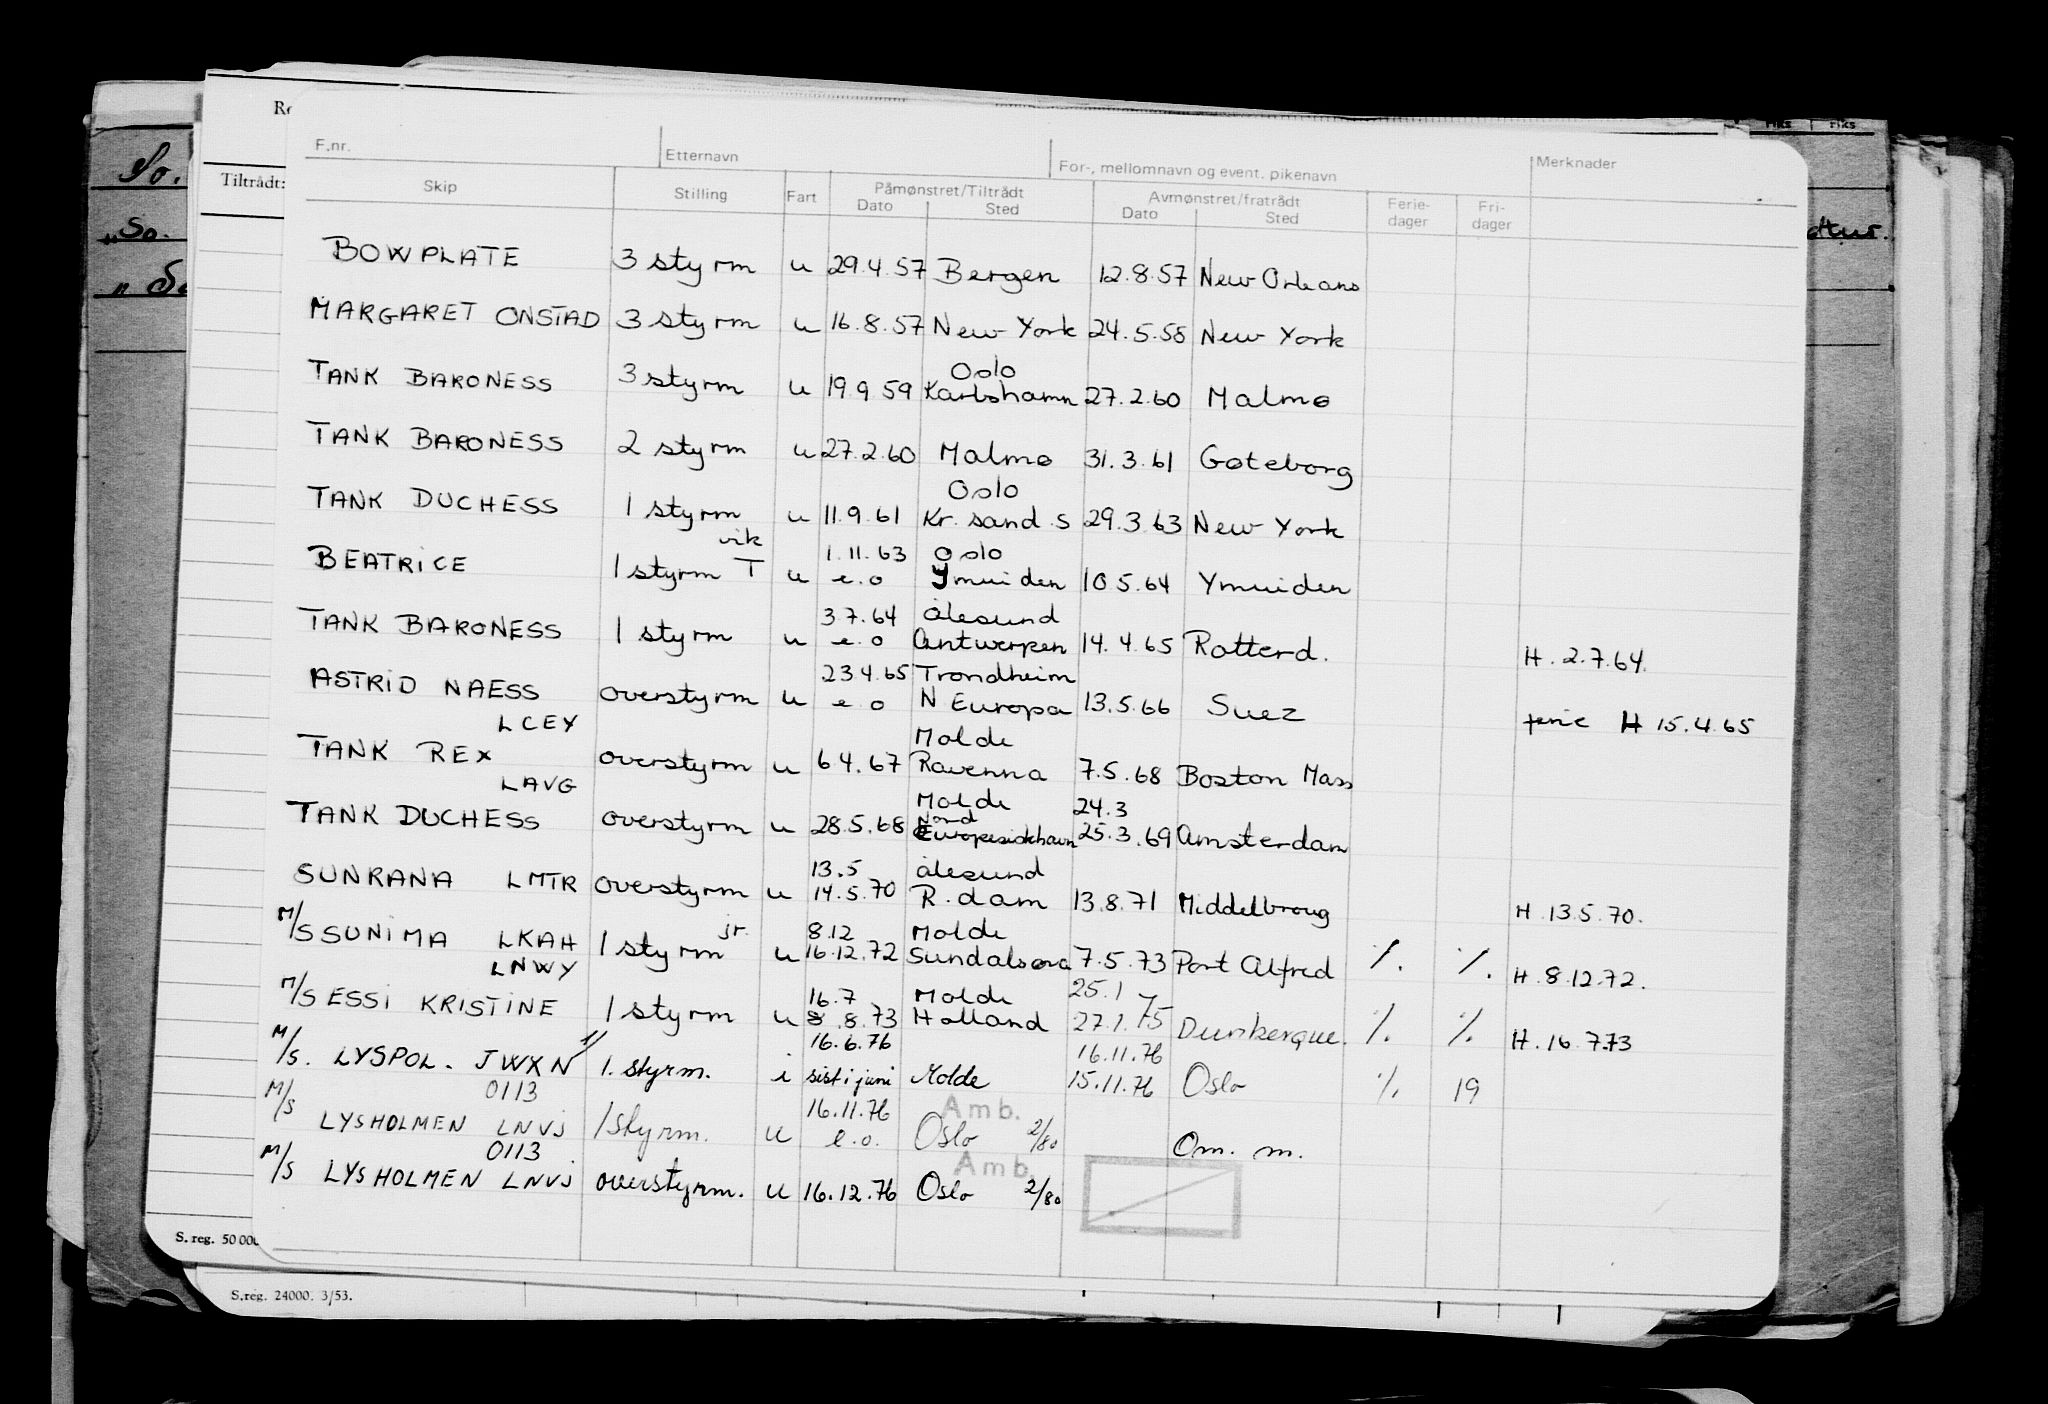 Re
Tiltrådt:
F.nr. Etternavn For-, mellomnavn og event. pikenavn Merknader
Skip Stilling Fart Påmønstret/Tiltrådt Avmønstret/fratrådt Ferie- Fri-
Dato Sted Dato Sted dager dager
BOWPLATE 3 styrm u 29.4.57 Bergen 12.8.57 New Orleans
MARGARET ONSTAD 3 styrm u 16.8.57 New York 24.5.58 New York
Oslo
TANK BARONESS 3 styrm u 19.9 59 Karlshamn 27.2.60 Malmø
TANK BARONESS 2 styrm u 27.2.60 Malmø 31.3.61 Gøteborg
Oslo
TANK DUCHESS 1 styrm u 11.9.61 Kr. sand.S 29.3.63 New York
vik 1.11.63 Oslo
BEATRICE 1 styrm T u e.o Ymuiden 10 5.64 Ymuiden
3 7.64 Ålesund
TANK BARONESS 1 styrm u e.o Antwerpen 14.4.65 Rotterd. H. 2.7.64.
23 4.65 Trondheim
ASTRID NAESS overstyrm u e o N Europa 13.5.66 Suez H 15.4.65
LCEY Molde
TANK REX overstyrm u 6 4.67 Ravenna 7.5.68 Boston Mass
LAVG Molde 24.3
Nord
TANK DUCHESS overstyrm u 28.5.68 Europeisk havn 25.3.69 Amsterdam
13.5 Ålesund
SUNRANA LMTR overstyrm u 14.5.70 R.dam 13.8.71 Middelbroug H 13.5.70.
jr. 8.12 Molde
M/S SUNIMA LKAH 1 styrm u 16.12.72 Sundalsøra 7.5.73 Port Alfred ./. ./. H 8.12.72.
LNWY 16.7 Molde 25.1
M/S ESSI KRISTINE 1 styrm u 8.8.73 Holland 27.1.75 Dunkerque. ./. ./. H. 16 7.73
16.6.76 16.11.76
M/S. LYSPOL. JWXN 1. styrm. i sist i juni Molde 15.11.76 Oslo ./. 19
0113 16.11.76 Amb.
M/S LYSHOLMEN LNVJ 1 styrm. u e.o. Oslo 2/80 Om. m.
0113 Amb.
M/S LYSHOLMEN LNVJ overstyrm. u 16.12.76 Oslo 2/80
S. reg. 50 000
S.reg. 24000. 3/53.